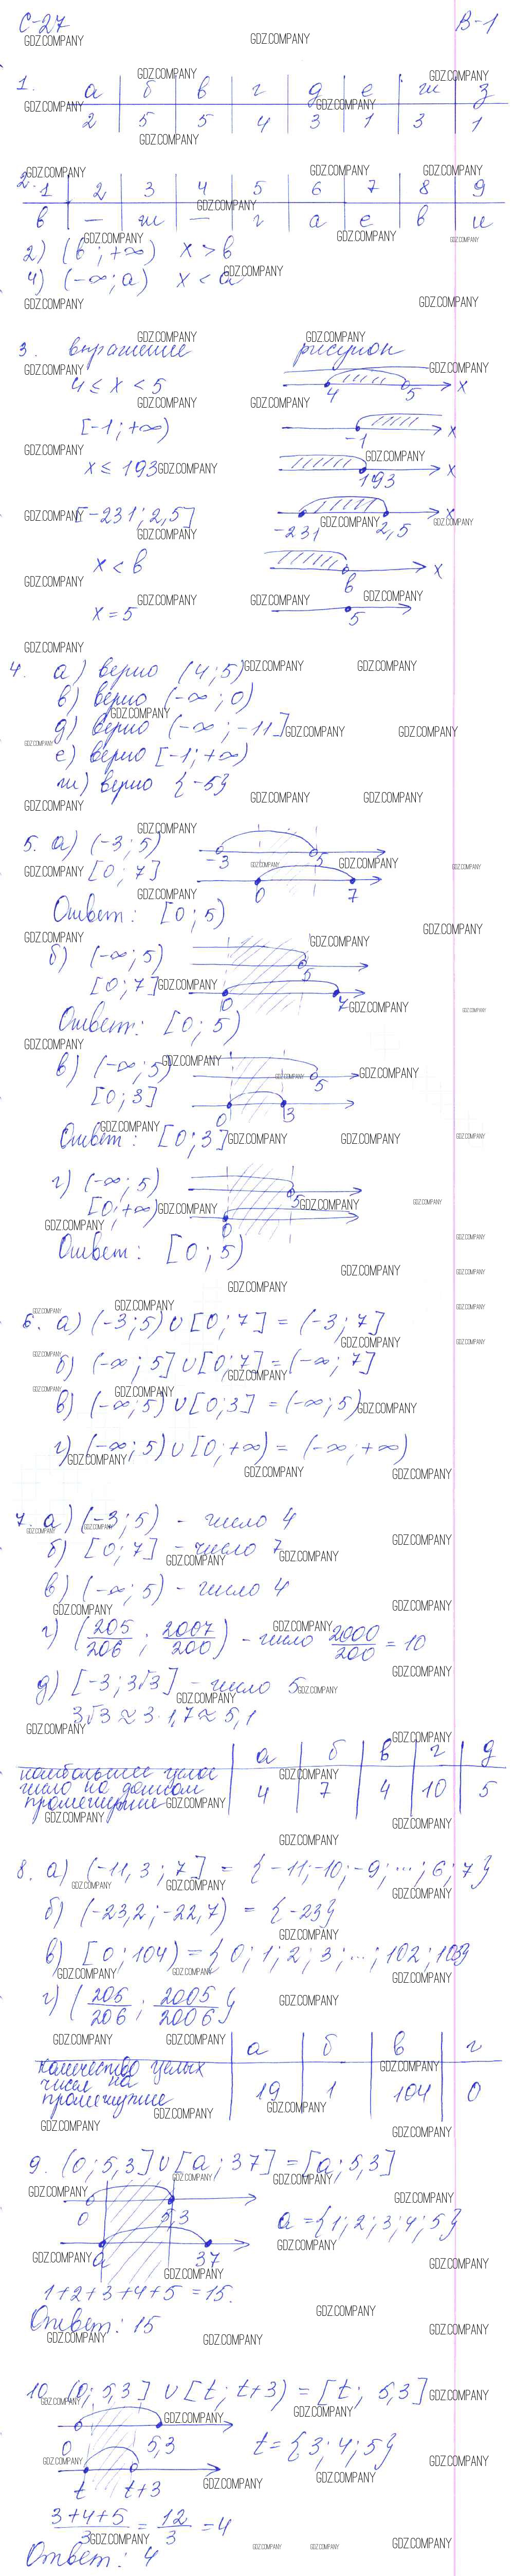 С-27 В-1
1. а б в г д е ж з
2 5 5 4 3 1 3 1
2. 1 2 3 4 5 6 7 8 9
в — ж — г а е в и
2) (в; +∞) x > в
4) (-∞; а) x < а
3. выражение рисунок
4 ≤ x < 5 4 5 x
[-1; +∞) -1 x
x ≤ 193 193 x
[-231; 2,5] -231 2,5 x
x < в в x
x = 5 5
4. а) верно (4; 5)
в) верно (-∞; 0)
д) верно (-∞; -11]
е) верно [-1; +∞)
ж) верно {-5}
5. а) (-3; 5) -3 5
[0; 7] 0 7
Ответ: [0; 5)
б) (-∞; 5) 5
[0; 7] 0 7
Ответ: [0; 5)
в) (-∞; 5) 5
[0; 3] 0 3
Ответ: [0; 3]
г) (-∞; 5) 5
[0; +∞) 0
Ответ: [0; 5)
6. а) (-3; 5) ∪ [0; 7] = (-3; 7]
б) (-∞; 5] ∪ [0; 7] = (-∞; 7]
в) (-∞; 5) ∪ [0; 3] = (-∞; 5)
г) (-∞; 5) ∪ [0; +∞) = (-∞; +∞)
7. а) (-3; 5) - число 4
б) [0; 7] - число 7
в) (-∞; 5) - число 4
г) (205/206; 2007/200) - число 2000/200 = 10
д) [-3; 3√3] - число 5
3√3 ≈ 3·1,7 ≈ 5,1
наибольшее целое число на данном промежутке а б в г д
4 7 4 10 5
8. а) (-11,3; 7] = {-11; -10; -9; ...; 6; 7}
б) (-23,2; -22,7) = {-23}
в) [0; 104) = {0; 1; 2; 3; ...; 102; 103}
г) (205/206; 2005/2006)
количество целых чисел на промежутке а б в г
19 1 104 0
9. (0; 5,3] ∪ [а; 37] = [а; 5,3]
0 5,3
а 37 а = {1; 2; 3; 4; 5}
1+2+3+4+5 = 15.
Ответ: 15
10. (0; 5,3] ∪ [t; t+3) = [t; 5,3]
0 5,3 t = {3; 4; 5}
t t+3
(3+4+5)/3 = 12/3 = 4
Ответ: 4
GDZ.COMPANY